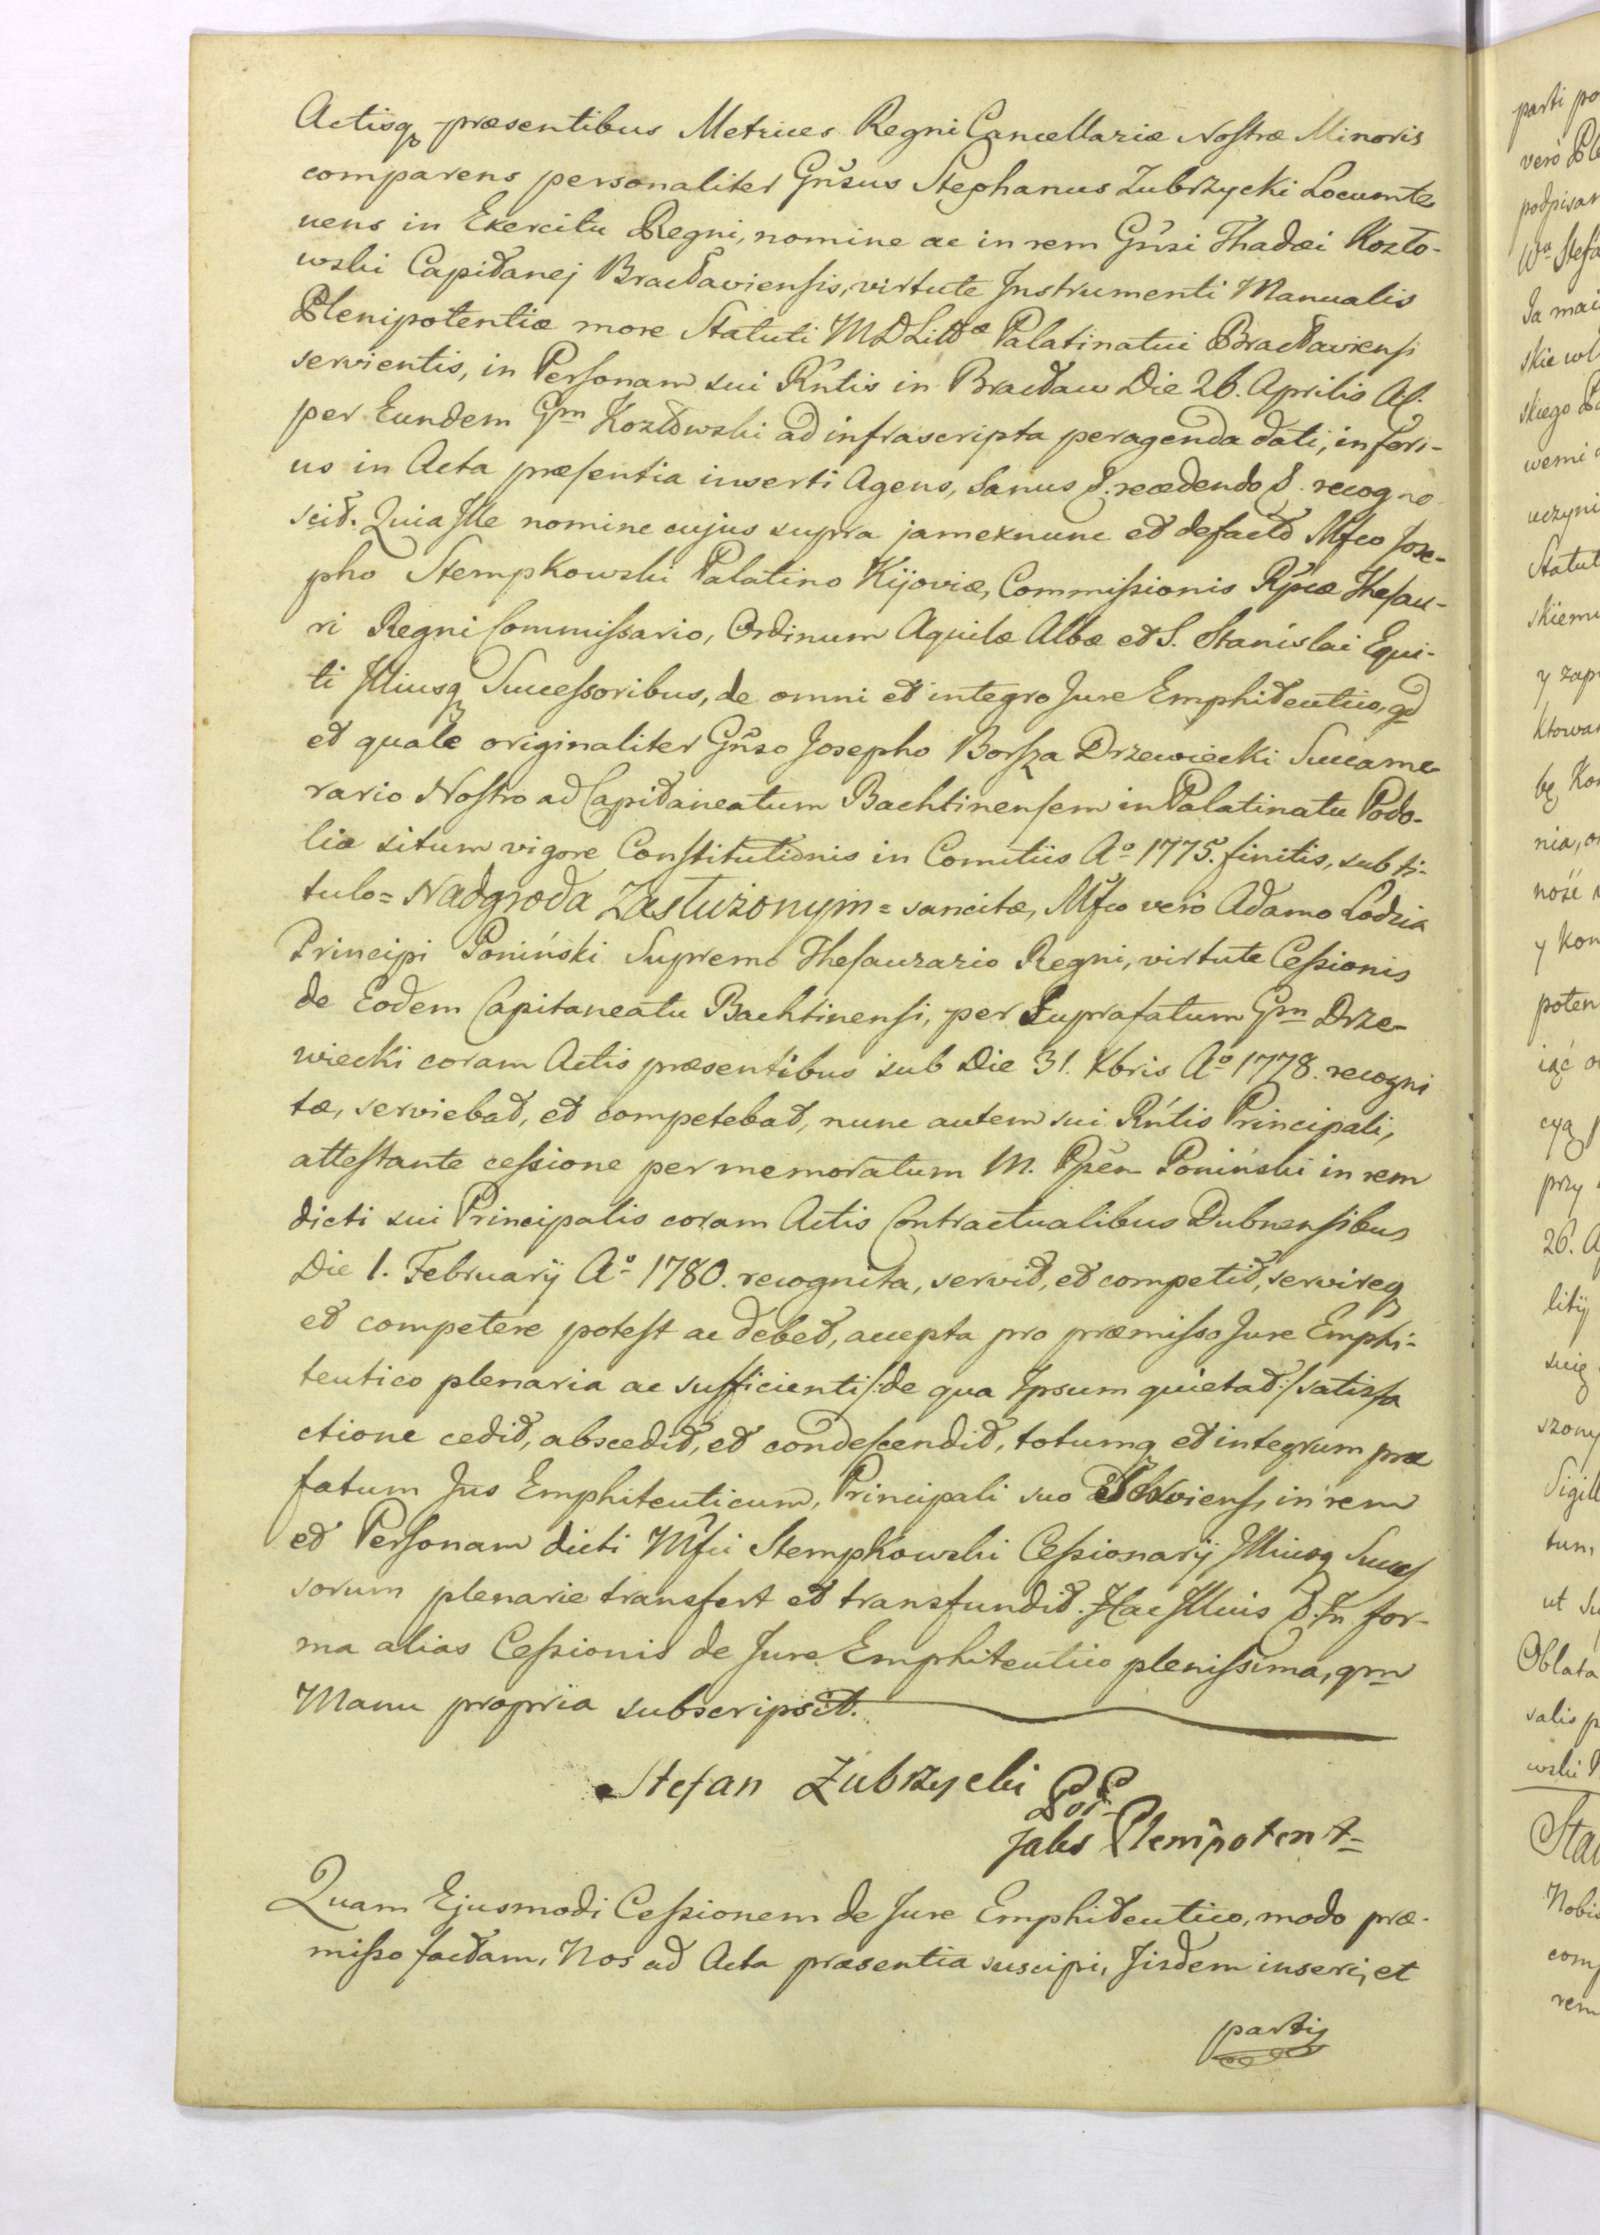 Actisq præsentibus Metrices Regni Cancellariæ Nostræ Minoris
comparens personaliter Gnsus Stephanus Zubrzycki Locumte
nens in Exercitu Regni, nomine ac in rem Gnsi Thadæi Kozło-
wski Capitanej Bracłaviensis, virtute Instrumenti Manualis
Plenipotentiæ more Statuti MDLittæ Palatinatui Bracłaviensi
servientis, in Personam sui Rntis in Bracław Die 26. Aprilis
per Eundem Gm Kozłowski ad infrascripta peragenda dati, inferi-
us in Acta præsentia inserti Agens, Sanus &. recedendo &. recogno
scit. Quia Ille nomine cujus supra jamexnunc et defacto Mfco Jose-
pho Stempkowski Palatino Kijoviæ, Commissionis Rpcæ Thesau-
ri Regni Commissario, Ordinum Aquilæ Albæ et S. Stanislai Equi-
ti Illiusq Successoribus, de omni et integro Jure Emphiteutico, qd
et quale originaliter Gnso Josepho Drzewiecki Succame-
rario Nostro ad Capitaneatum Bachtinensem in Palatinatu Podo-
liæ situm vigore Constitutionis in Comitiis Ao 1775. finitis, sub ti-
tulo = Nadgroda Zasłużonym = sancitæ, Mfco vero Adamo Łodzia
Principi Poniński Supremo Thesaurario Regni, virtute Cessionis
de Eodem Capitaneatu Bachtinensi, per Suprafatum Gm Drze-
wiecki coram Actis præsentibus sub Die 31. Xbris Ao 1778. recogni
tæ, serviebat, et competebat, nunc autem sui Rntis Principali,
attestante cessione per memoratum M. Ppem Poniński in rem
dicti sui Principalis coram Actis Contractualibus Dubnensibus
Die 1. Februarij Ao 1780. recognita, servit, et competit, servireq
et competere potest ac debet, accepta pro præmisso Jure Emphi-
teutico plenaria ac sufficienti /:de qua Ipsum quietat:/ satisfa
ctione cedit, abscedit, et condescendit, totumq et integrum præ
fatum Jus Emphiteuticum, Principali suo serviens, in rem
et Personam dicti Mfci Stempkowski Cessionarij Illiusq Succes
sorum plenarie transfert et transfundit. Hac Illius &. In for-
ma alias Cessionis de Jure Emphiteutico plenissima, qm
Manu propria subscripsit.
Stefan Zubrzycki
Por
Jako Plenipotent
Quam Ejusmodi Cessionem de Jure Emphiteutico, modo præ-
misso factam, Nos ad Acta præsentia suscipi, Iisdem inseri, et
parti